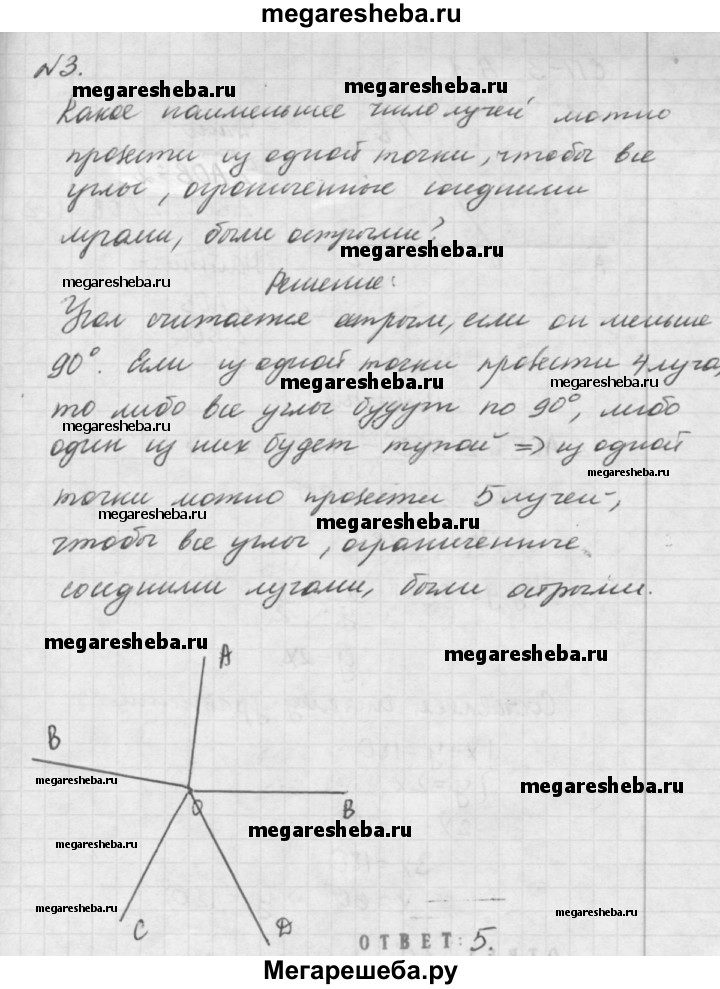 megaresheba.ru
№3.
megaresheba.ru megaresheba.ru
Какое наименьшее число лучей можно
провести из одной точки, чтобы все
углы, ограниченные соседними
лучами, были острыми?
megaresheba.ru
megaresheba.ru Решение:
Угол считается острым, если он меньше
90°. Если из одной точки провести 4 луча,
megaresheba.ru megaresheba.ru
то либо все углы будут по 90°, либо
megaresheba.ru
один из них будет тупой => из одной
megaresheba.ru
точки можно провести 5 лучей,
megaresheba.ru megaresheba.ru
чтобы все углы, ограниченные
соседними лучами, были острыми.
megaresheba.ru A megaresheba.ru
B
megaresheba.ru megaresheba.ru
O B
megaresheba.ru
megaresheba.ru
megaresheba.ru megaresheba.ru
C D
ОТВЕТ: 5.
Мегарешеба.ру